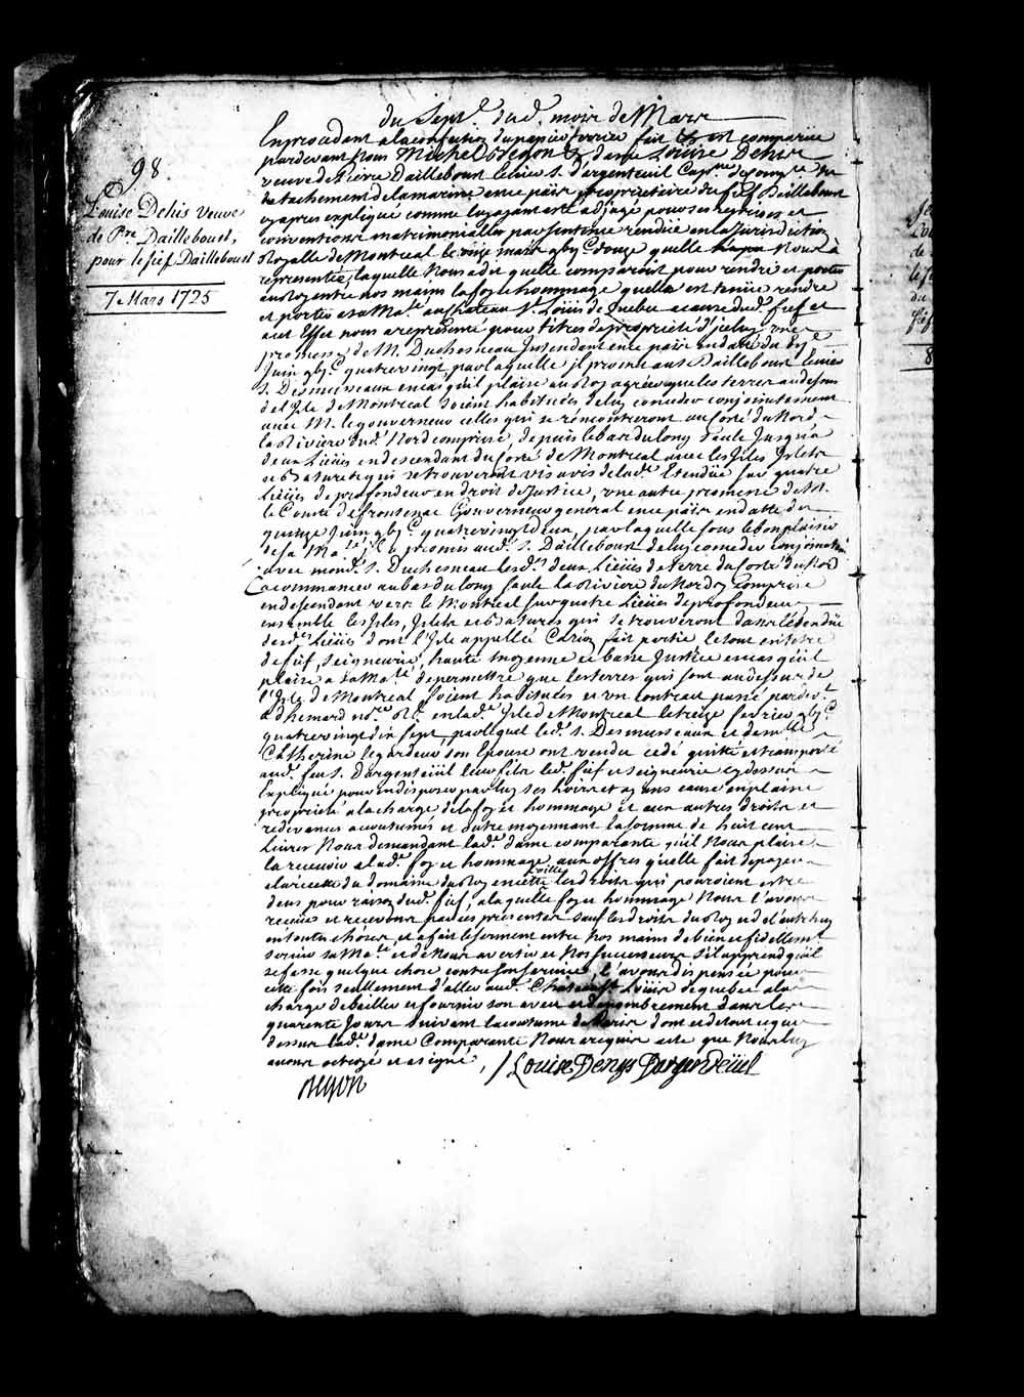 98.
Louise Denis Veuve
de P.re Dailleboust,
pour le fief Dailleboust
7e Mars 1725
du Sept.e dud. mois de Mars
En procedant a la confection du papier terrier fait est comparüe
pardevant Nous Michel Begon &c dame Loüise Denis
veuve de Pierre Dailleboust Ecuier S. d'argenteuil Cap.ne de Comp.ie du
detachement de la marine en ce païs proprietaire du fief Dailleboust
cy apres expliqué comme luy ayant eté adjugé pour ses reprises et
conventions matrimoniales par sentence rendüe en la Jurisdiction
Royalle de Montreal le mars gbij.c douze quelle Nous à
representée, laquelle Nous a dit quelle comparoit pour rendre et porter
au Roy entre nos mains la foy et hommage quelle est tenüe rendre
et porter a sa Ma.té au Chateau S.t Loüis de Quebec a cause dud. fief et
a cet Effet nous a representé pour titres de proprieté d'iceluy une
promesse de M. Duchesneau Intendant en ce païs en datte du
Juin gbj.c quatrevingt, par laquelle il promet au S. Dailleboust Ecuier
S. Desmusseaux en cas qu'il plaise au Roy agréer que les terres au dessus
de l'Isle de Montreal soient habituées de luy conceder conjointement
avec M. le gouverneur celles qui se rencontreront au Costé du Nord
la Riviere du Nord comprise, depuis le bas du long Sault Jusqu'a
deux Liëües en descendant du Costé de Montreal avec les Isles Islets
et Batures qui se trouveront vis avis de lad. Etendüe sur quatre
Liëües de profondeur en droit de Justice, une autre promesse de M.
le Comte de frontenac Gouverneur general en ce païs en datte du
quinze Juin gbj.c quatrevingt deux, par laquelle sous le bon plaisir
de sa Ma.té il a promis aud. S. Dailleboust de luy conceder conjointem.t
avec mond. S. Duchesneau lesd. deux Liëües de terre du Costé du Nord
a commancer au bas du long Sault la Riviere du Nord y comprise
en descendant vers le Montreal sur quatre Liëües de profondeur
ensemble les Isles, Islets et Batures qui se trouveront dans l'etendüe
desd. Liëües dont l'Isle appellée Carion fait partie le tout en titre
de fief, Seigneurie, haute moyenne et basse Justice en cas qu'il
plaise a sa Ma.té de permettre que les terres qui sont au dessus de
l'Isle de Montreal soient habituées et un Contract passé pardev.t
Adhemard no.re en lad. Isle de Montreal le treize fevrier gbj.c
quatrevingt dix sept par lequel led. S. Desmusseaux et dem.lle
Catherine Legardeur son Epouse ont vendu cedé quitté et transporté
aud. feu S. Dargenteüil leur fils led. fief et seigneurie cy dessus
Expliqué pour en disposer par luy ses hoirs et ayans cause en plaine
proprieté a la charge de la foy et hommage et aux autres droits et
redevances acoutumés et outre moyennant la somme de huit cent
Livres Nous demandant lad. dame comparante qu'il Nous plaise
la recevoir a lad. foy et hommage aux offres quelle fait de payer
a la recette du domaine du Roy en cette ville les droits qui pouroient estre
deus pour raison dud. fief, a laquelle foy et hommage Nous l'avons
receüe et recevons par ces presentes sauf les droits du Roy et d'autruy
en toutes choses, et a fait le serment entre Nos mains de bien et fidellem.t
servir sa Ma.té et de Nous avertir et Nos successeurs s'il apprend qu'il
se fasse quelque chose contre son service, l'avons dispensée pour
cette fois seullement d'aller aud. Chateau S.t Loüis de quebec a la
charge de bailler et fournir son aveu et denombrement dans les
quarente Jours suivant la coutume de Paris dont et de tout ce que
dessus lad. dame Comparante Nous a requis acte que Nous luy
avons octroyé et a signé, / Louise Denys Dargenteüil
Begon